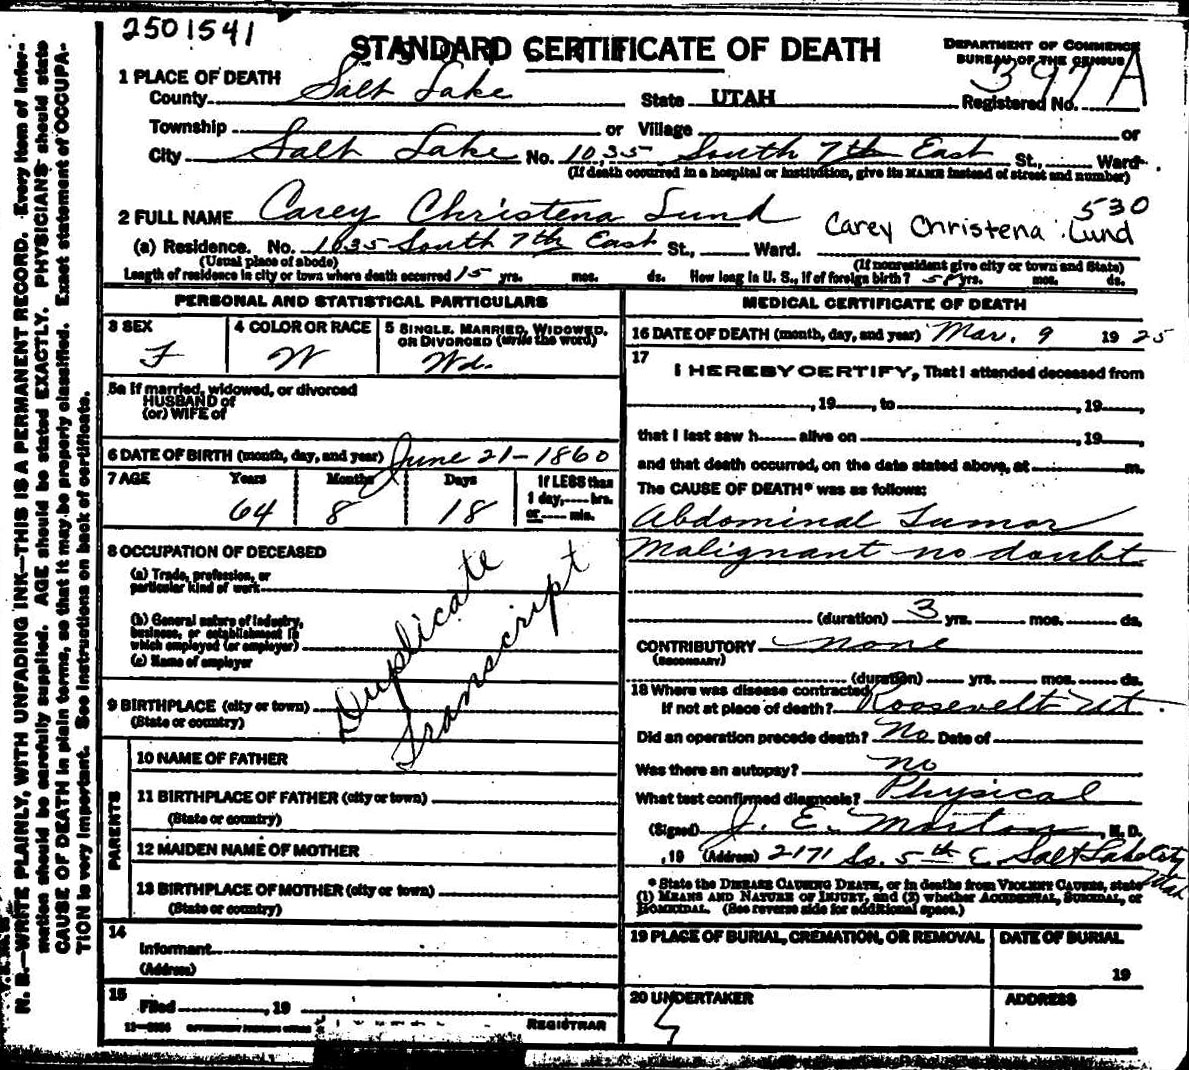 2501541
STANDARD CERTIFICATE OF DEATH
DEPARTMENT OF COMMERCE
BUREAU OF THE CENSUS
1 PLACE OF DEATH
County Salt Lake State UTAH Registered No. 397A
Township or Village or
City Salt Lake No. 1035 South 7th East St., Ward.
(If death occurred in a hospital or institution, give its NAME instead of street and number)
530
2 FULL NAME Carey Christena Lund Carey Christena Lund
(a) Residence. No. 1035 South 7th East St., Ward.
(Usual place of abode) (If nonresident give city or town and State)
Length of residence in city or town where death occurred 15 yrs. mos. ds. How long in U. S., if of foreign birth? 58 yrs. mos. ds.
PERSONAL AND STATISTICAL PARTICULARS
3 SEX F
4 COLOR OR RACE W
5 SINGLE, MARRIED, WIDOWED, OR DIVORCED (write the word) Wd.
5a If married, widowed, or divorced
HUSBAND of
(or) WIFE of
6 DATE OF BIRTH (month, day, and year) June 21-1860
7 AGE Years Months Days If LESS than
1 day, hrs.
or min.
64 8 18
8 OCCUPATION OF DECEASED
(a) Trade, profession, or
particular kind of work
(b) General nature of industry,
business, or establishment in
which employed (or employer)
(c) Name of employer
Duplicate
Transcript
9 BIRTHPLACE (city or town)
(State or country)
PARENTS
10 NAME OF FATHER
11 BIRTHPLACE OF FATHER (city or town)
(State or country)
12 MAIDEN NAME OF MOTHER
13 BIRTHPLACE OF MOTHER (city or town)
(State or country)
14
Informant
(Address)
15
Filed , 19
REGISTRAR
MEDICAL CERTIFICATE OF DEATH
16 DATE OF DEATH (month, day, and year) Mar. 9 19 25
17
I HEREBY CERTIFY, That I attended deceased from
, 19 , to , 19 ,
that I last saw h alive on , 19 ,
and that death occurred, on the date stated above, at m.
The CAUSE OF DEATH* was as follows:
Abdominal Tumor
Malignant no doubt
(duration) 3 yrs. mos. ds.
CONTRIBUTORY none
(SECONDARY)
(duration) yrs. mos. ds.
18 Where was disease contracted
If not at place of death? Roosevelt Ut.
Did an operation precede death? No Date of
Was there an autopsy? no
What test confirmed diagnosis? Physical
(Signed) J. E. Morton, M. D.
, 19 (Address) 2171 So. 5th E Salt Lake City
Utah
* State the DISEASE CAUSING DEATH, or in deaths from VIOLENT CAUSES, state
(1) MEANS AND NATURE OF INJURY, and (2) whether ACCIDENTAL, SUICIDAL, or
HOMICIDAL. (See reverse side for additional space.)
19 PLACE OF BURIAL, CREMATION, OR REMOVAL
DATE OF BURIAL
19
20 UNDERTAKER
ADDRESS
N. B.—WRITE PLAINLY, WITH UNFADING INK—THIS IS A PERMANENT RECORD. Every item of infor-
mation should be carefully supplied. AGE should be stated EXACTLY. PHYSICIANS should state
CAUSE OF DEATH in plain terms, so that it may be properly classified. Exact statement of OCCUPA-
TION is very important. See instructions on back of certificate.